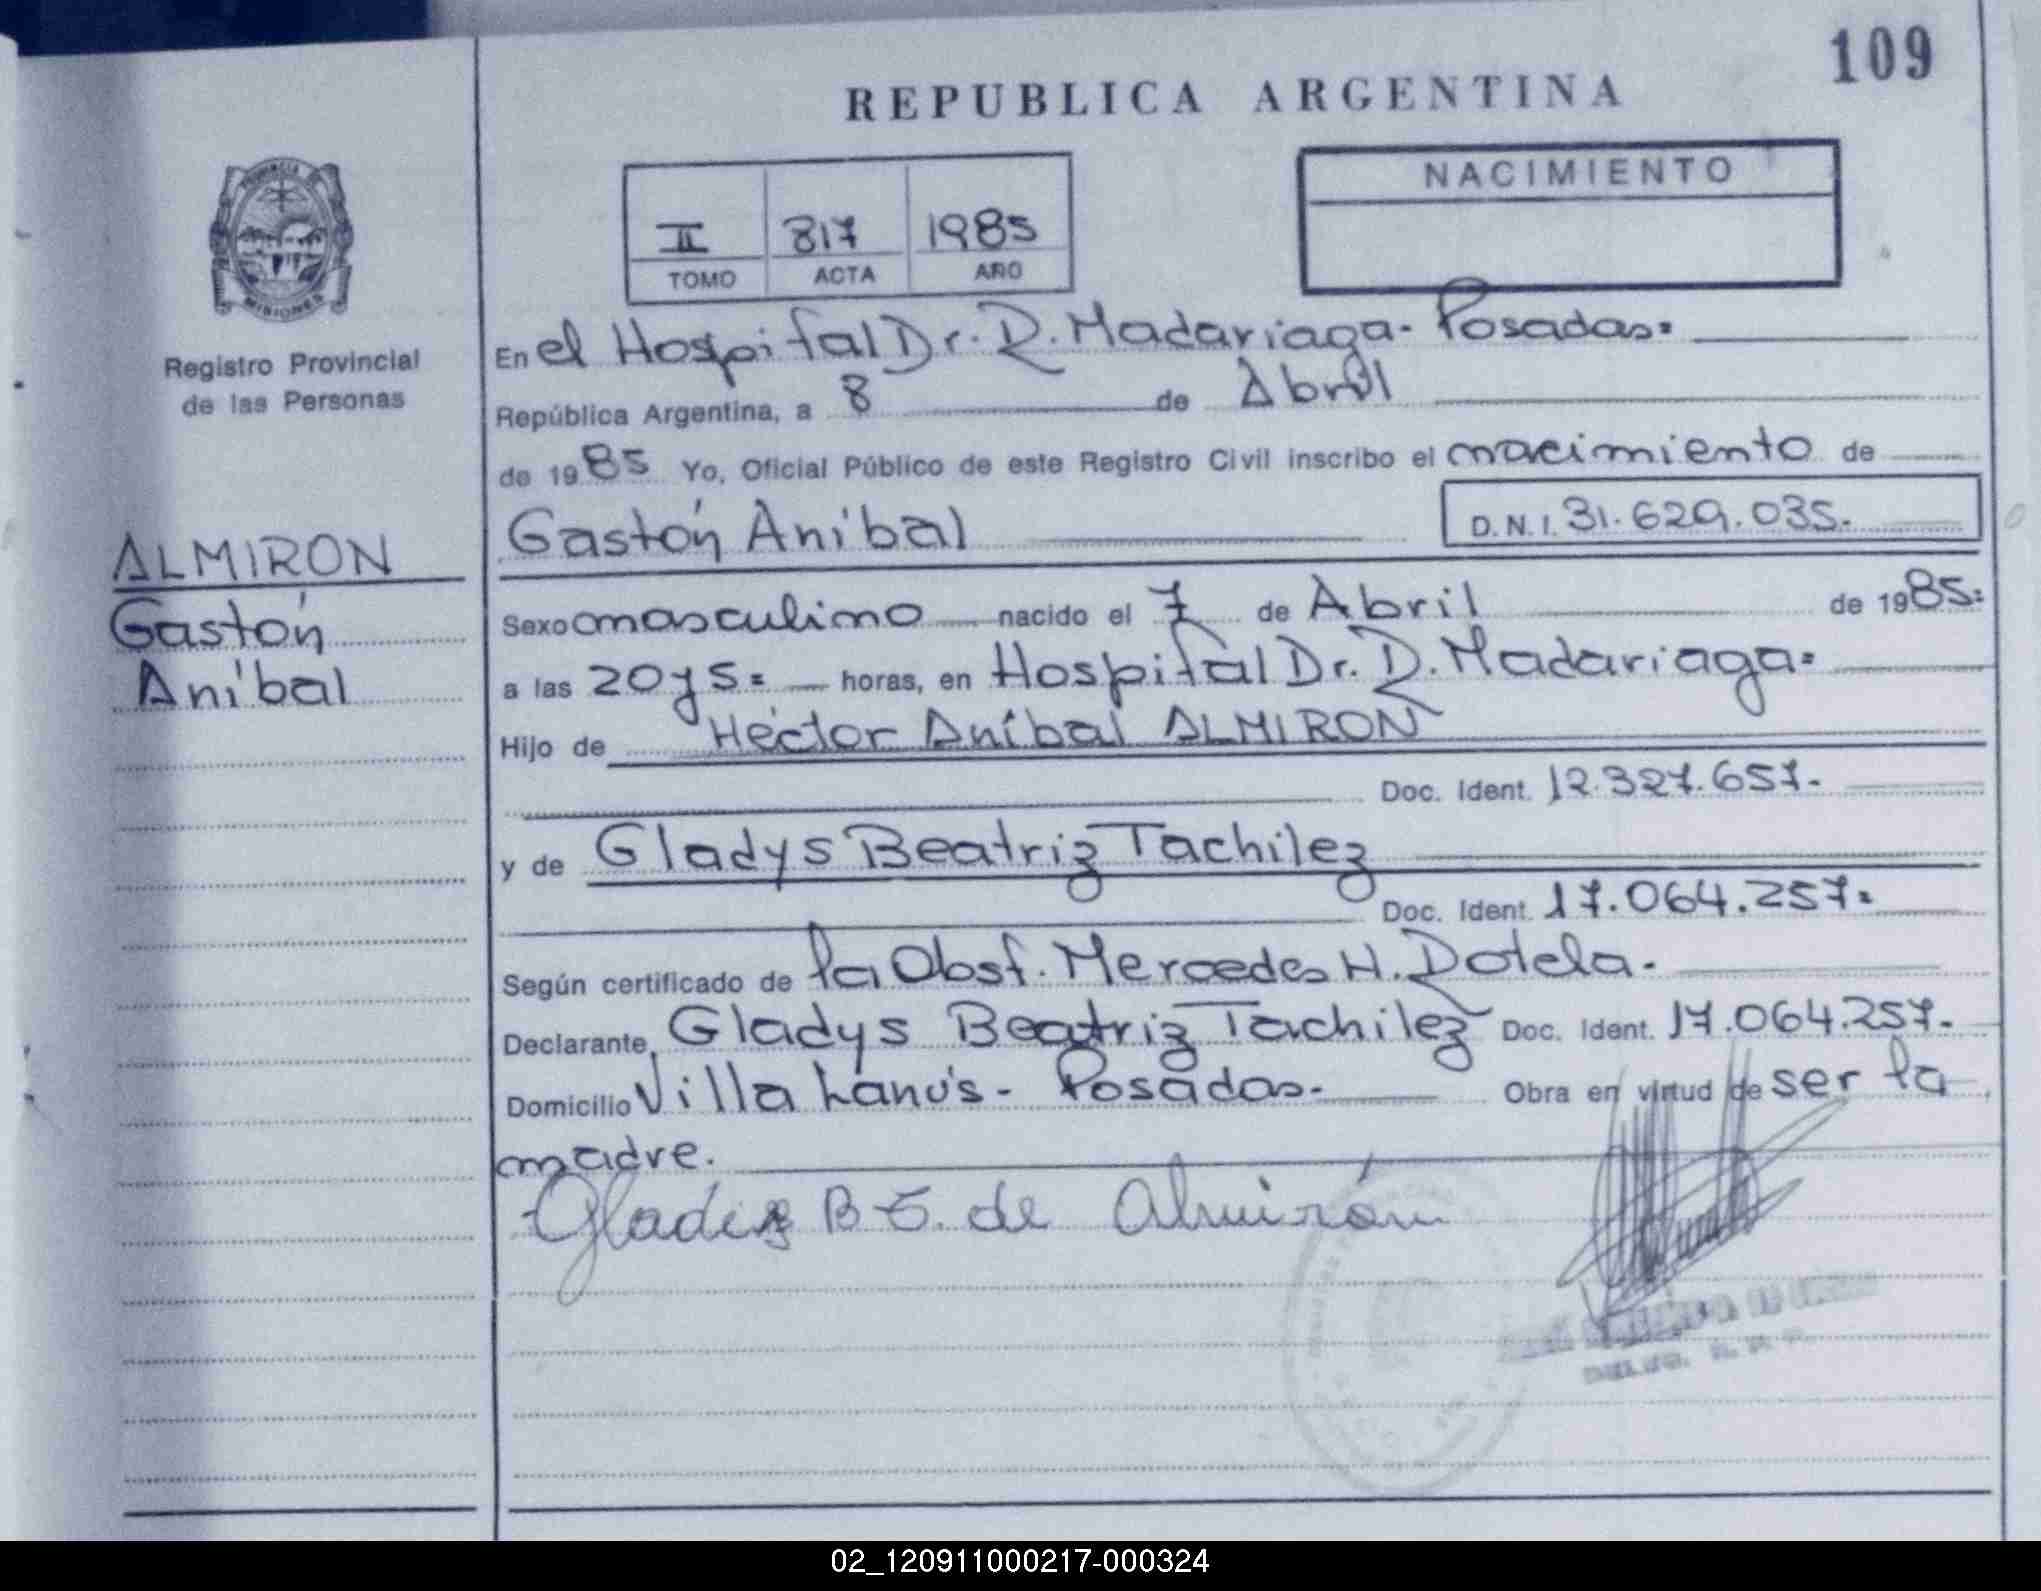 109
REPUBLICA ARGENTINA
NACIMIENTO
II 817 1985
TOMO ACTA AÑO
PROVINCIA DE
MISIONES
Registro Provincial
de las Personas
ALMIRON
Gastón
Aníbal
En el Hospital Dr. R. Madariaga- Posadas=
República Argentina, a 8 de Abril
de 1985 Yo, Oficial Público de este Registro Civil inscribo el nacimiento de
Gastón Aníbal D.N.I. 31.629.035.
Sexo masculino nacido el 7 de Abril de 1985=
a las 20y5= horas, en Hospital Dr. R. Madariaga=
Hijo de Héctor Aníbal ALMIRON
Doc. Ident. 12.327.657-
y de Gladys Beatriz Tachilez
Doc. Ident. 17.064.257=
Según certificado de la Obst. Mercedes H. Dotela.
Declarante, Gladys Beatriz Tachilez Doc. Ident. 17.064.257-
Domicilio Villa Lanús- Posadas- Obra en virtud de ser la
madre.
Gladiz B T. de Almirón
02_120911000217-000324